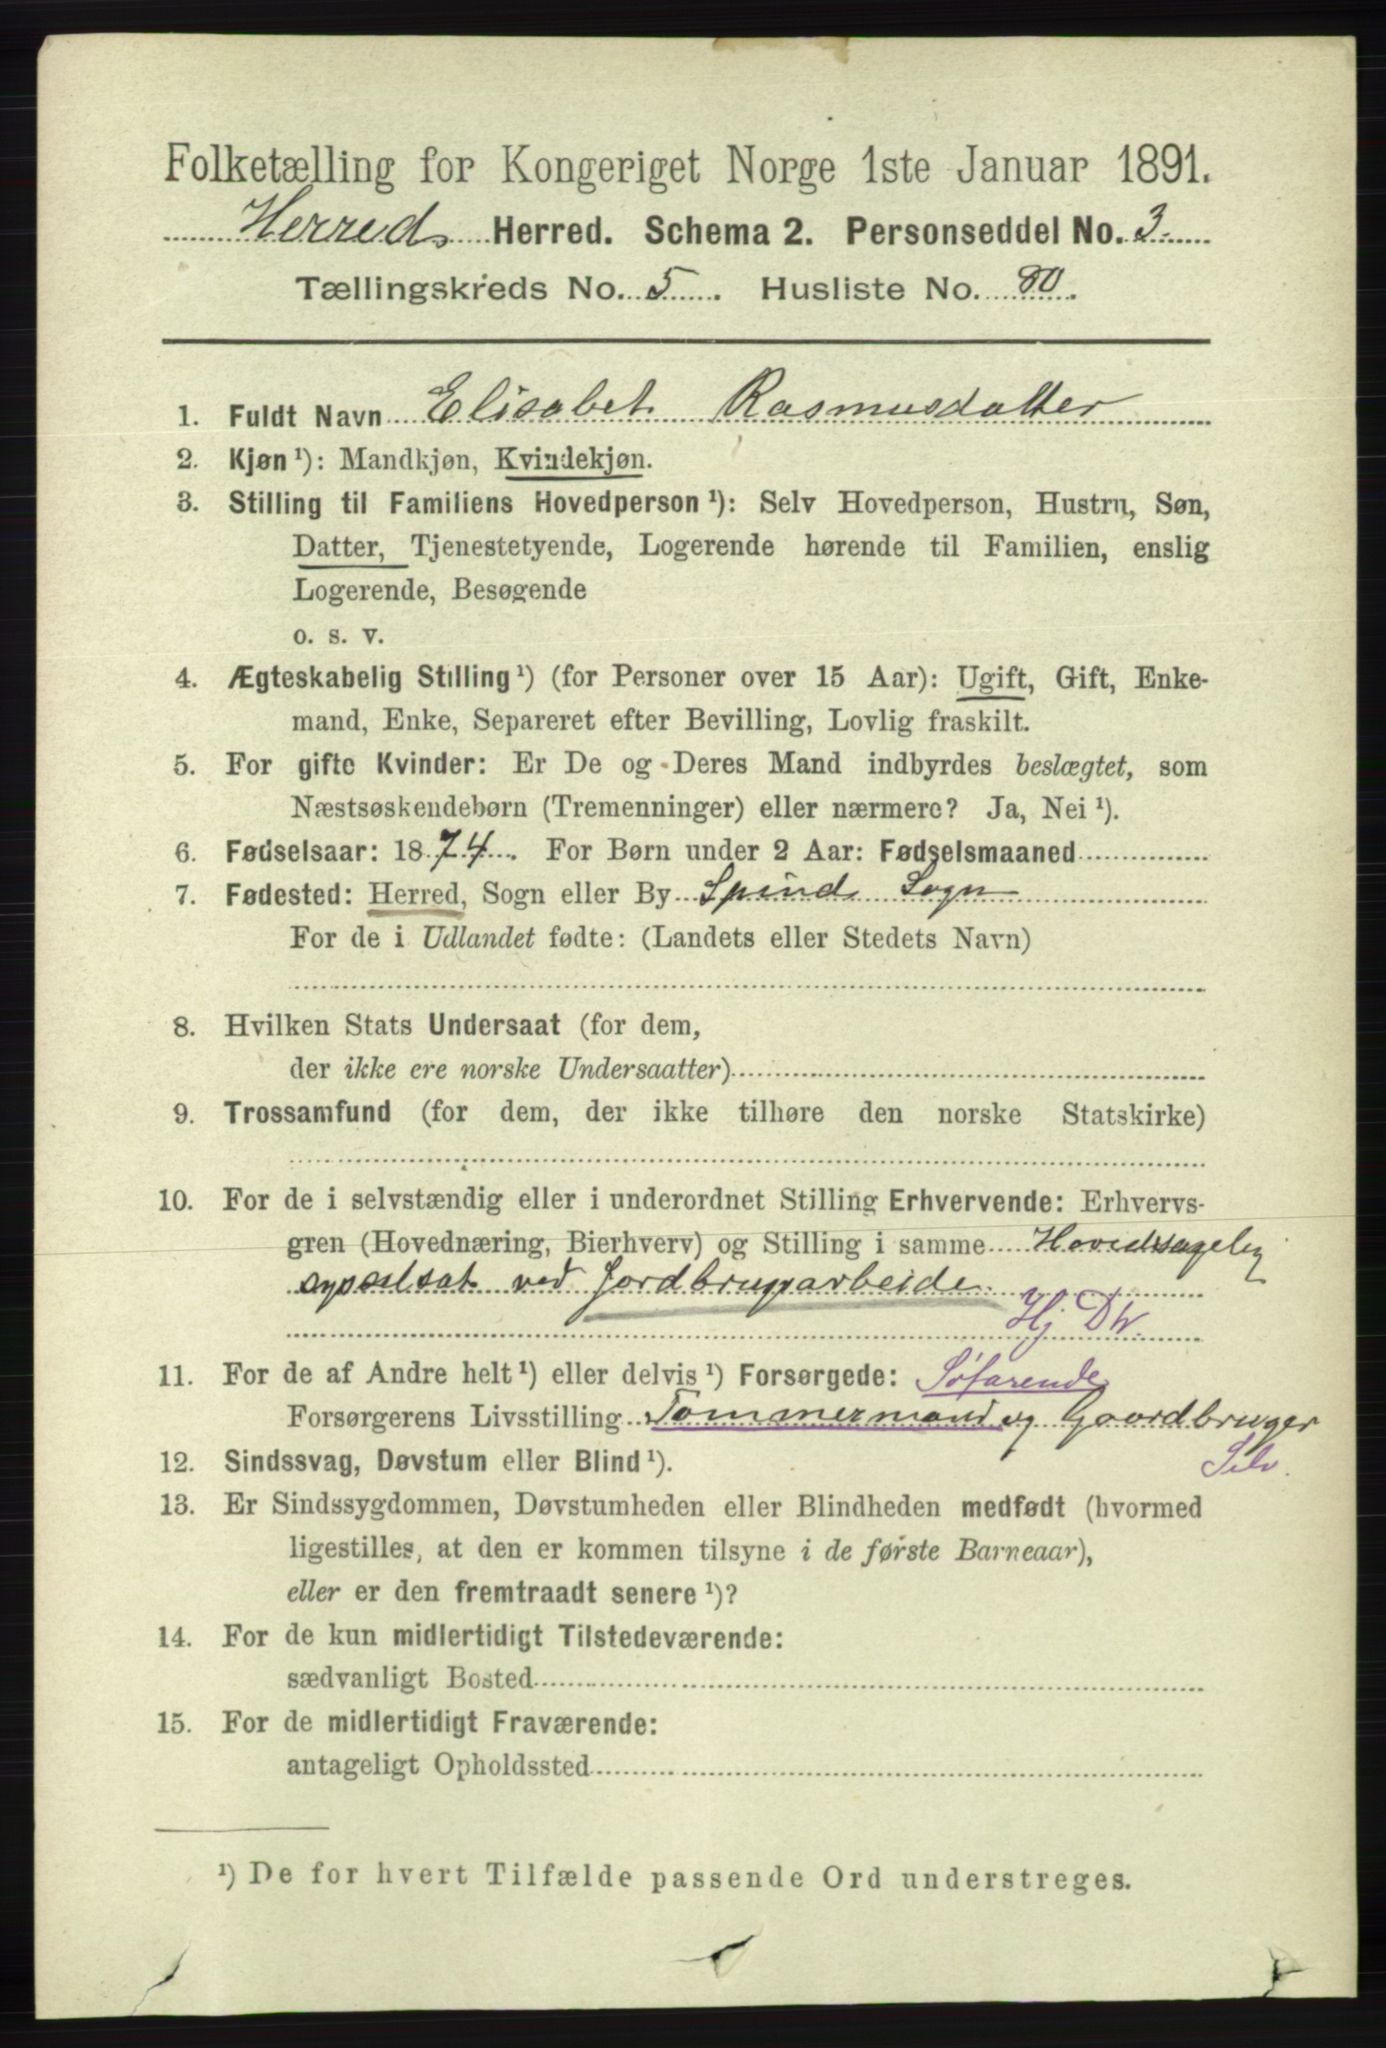 Folketælling for Kongeriget Norge 1ste Januar 1891.
Herreds Herred. Schema 2. Personseddel No. 3.
Tællingskreds No. 5. Husliste No. 80.
1. Fuldt Navn Elisabet Rasmusdatter
2. Kjøn ¹): Mandkjøn, Kvindekjøn.
3. Stilling til Familiens Hovedperson ¹): Selv Hovedperson, Hustru, Søn,
Datter, Tjenestetyende, Logerende hørende til Familien, enslig
Logerende, Besøgende
o. s. v.
4. Ægteskabelig Stilling ¹) (for Personer over 15 Aar): Ugift, Gift, Enke-
mand, Enke, Separeret efter Bevilling, Lovlig fraskilt.
5. For gifte Kvinder: Er De og Deres Mand indbyrdes beslægtet, som
Næstsøskendebørn (Tremenninger) eller nærmere? Ja, Nei ¹).
6. Fødselsaar: 1874. For Børn under 2 Aar: Fødselsmaaned
7. Fødested: Herred, Sogn eller By Spinds Sogn
For de i Udlandet fødte: (Landets eller Stedets Navn)
8. Hvilken Stats Undersaat (for dem,
der ikke ere norske Undersaatter)
9. Trossamfund (for dem, der ikke tilhøre den norske Statskirke)
10. For de i selvstændig eller i underordnet Stilling Erhvervende: Erhvervs-
gren (Hovednæring, Bierhverv) og Stilling i samme Hovedsagelig
sysselsat ved Jordbrugsarbeide
Hj Dtr.
11. For de af Andre helt ¹) eller delvis ¹) Forsørgede: Søfarende
Forsørgerens Livsstilling Tømmermand og Gaardbruger
Selv.
12. Sindssvag, Døvstum eller Blind ¹).
13. Er Sindssygdommen, Døvstumheden eller Blindheden medfødt (hvormed
ligestilles, at den er kommen tilsyne i de første Barneaar),
eller er den fremtraadt senere ¹)?
14. For de kun midlertidigt Tilstedeværende:
sædvanligt Bosted
15. For de midlertidigt Fraværende:
antageligt Opholdssted
¹) De for hvert Tilfælde passende Ord understreges.